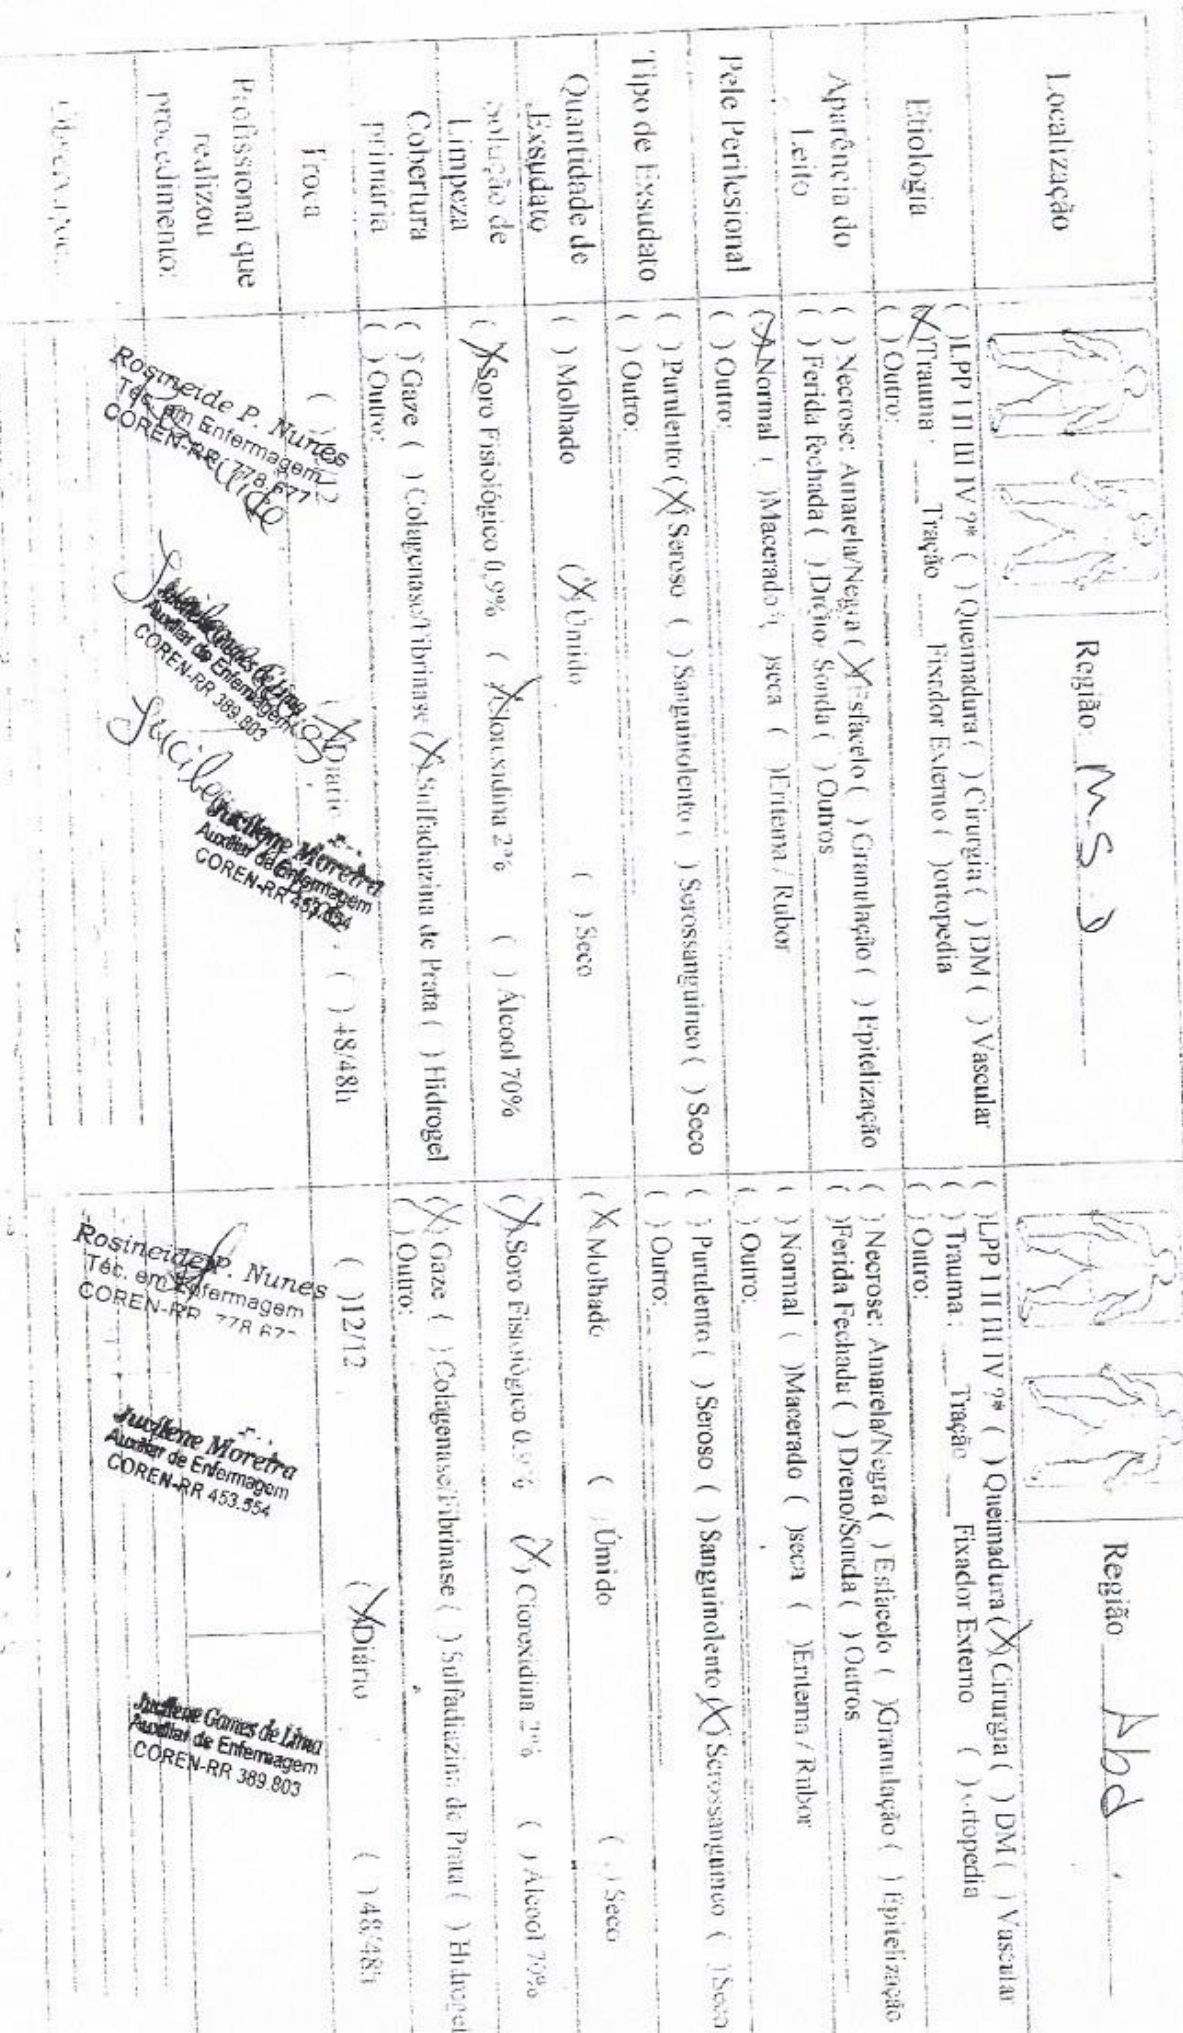 Localização
Região: M.S.D
Região Abd
Etiologia
( )LPP I II III IV ?* ( ) Queimadura ( ) Cirurgia ( ) DM ( ) Vascular
(X)Trauma: ___ Tração ___ Fixador Externo ( )ortopedia
( ) Outro:
( )LPP I II III IV ?* ( ) Queimadura (X) Cirurgia ( ) DM ( ) Vascular
( ) Trauma: ___ Tração ___ Fixador Externo ( ) ortopedia
( ) Outro:
Aparência do
Leito
( ) Necrose: Amarela/Negra (X) Esfacelo ( ) Granulação ( ) Epitelização
( ) Ferida Fechada ( ) Dreno/Sonda ( ) Outros
( ) Necrose: Amarela/Negra ( ) Esfacelo ( )Granulação ( ) Epitelização
( )Ferida Fechada ( ) Dreno/Sonda ( ) Outros
Pele Perilesional
(X)Normal ( )Macerado ( )seca ( )Eritema / Rubor
( ) Outro:
( ) Normal ( )Macerado ( )seca ( )Eritema / Rubor
( ) Outro:
Tipo de Exsudato
( ) Purulento (X) Seroso ( ) Sanguinolento ( ) Serossanguineo ( ) Seco
( ) Outro:
( ) Purulento ( ) Seroso ( ) Sanguinolento (X) Serossanguineo ( ) Seco
( ) Outro:
Quantidade de
Exsudato
( ) Molhado (X) Úmido ( ) Seco
(X) Molhado ( ) Úmido ( ) Seco
Solução de
Limpeza
(X) Soro Fisiológico 0,9% (X) 2% ( ) Álcool 70%
(X) Soro Fisiológico 0,9% (X) Clorexidina 2% ( ) Álcool 70%
Cobertura
primária
( ) Gaze ( ) Colagenase/Fibrinase (X) Sulfadiazina de Prata ( ) Hidrogel
( ) Outro:
(X) Gaze ( ) Colagenase/Fibrinase ( ) Sulfadiazina de Prata ( ) Hidrogel
( ) Outro:
Troca
(X)Diário ( ) 48/48h
( )12/12 (X)Diário ( )48/48h
Profissional que
realizou
procedimento:
Rosineide P. Nunes
Téc. em Enfermagem
COREN-RR 778.677
Auxiliar de Enfermagem
COREN-RR 389.803
Jucilene Moreira
Auxiliar de Enfermagem
COREN-RR 453.554
Rosineide P. Nunes
Téc. em Enfermagem
COREN-RR 778.677
Jucilene Moreira
Auxiliar de Enfermagem
COREN-RR 453.554
Jucilene Gomes de Lima
Auxiliar de Enfermagem
COREN-RR 389.803